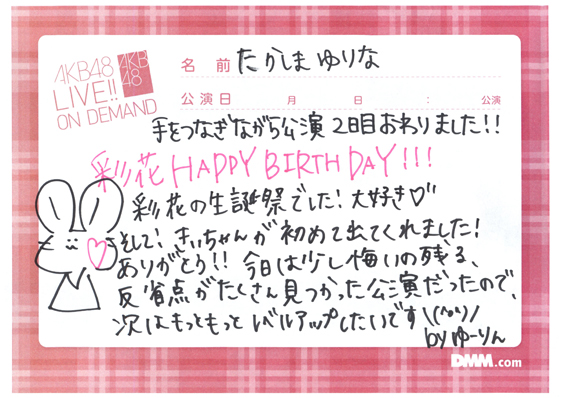 AKB48
LIVE!!
ON DEMAND
AKB
48
名 前 たかしまゆりな
公演日 月 日 : 公演
手をつなぎながら公演 2日目おわりました!!
彩花 HAPPY BIRTHDAY!!!
彩花の生誕祭でした!大好き♡
そして!きぃちゃんが初めて出てくれました!
ありがとう!!今日は少し悔いの残る、
反省点がたくさん見つかった公演だったので、
次はもっともっとレベルアップしたいです
by ゆーりん
DMM.com